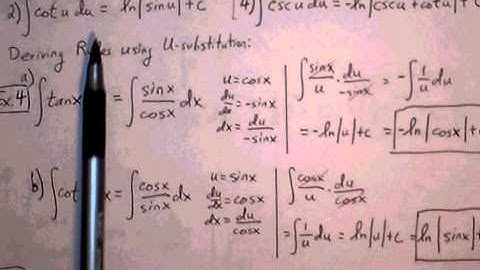 2) ∫cot u du = ln|sin u| + c  4) ∫csc u du = -ln|csc u + cot u| +
Deriving using U-substitution:
a)
x.4) ∫tanx = ∫ sinx/cosx dx  u = cosx  du/dx = -sinx  dx = du/-sinx
∫ sinx/u · du/-sinx = -∫ 1/u du
= -ln|u| + c = -ln|cosx| +
b) ∫cot x = ∫ cosx/sinx dx  u = sinx  du/dx = cosx  dx = du/cosx
∫ cosx/u · du/cosx
= ∫ 1/u du = ln|u| + c = ln|sinx| +